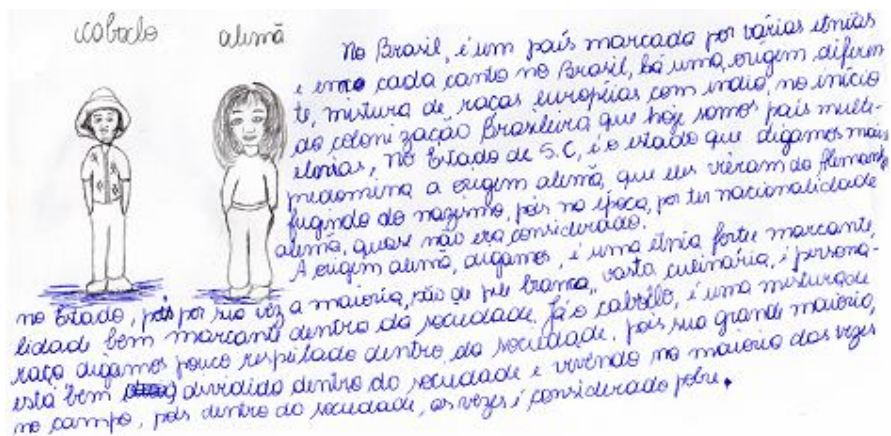 icoboclo alemã
No Brasil, é um país marcado por várias etnias
e em cada canto no Brasil, há uma origem diferen
te, mistura de raças européias com indio, no início
da colonização Brasileira que hoje somos país multi-
etnias, no Estado de S.C, é o estado que digamos mais
predomina a origem alemã, que eles vieram da Alemanha
fugindo do nazismo, pois na época, por ter nacionalidade
alemã, quase não era considerado.
A origem alemã, digamos, é uma etnia forte marcante,
no Estado, pois por sua vez a maioria, são de pele branca, vasta culinária, e persona-
lidade bem marcante dentro da sociedade. Já o caboclo, é uma mistura de
raça digamos pouco respeitado dentro da sociedade, pois sua grande maioria,
está bem dividido dentro da sociedade e vivendo na maioria das vezes
no campo, pois dentro da sociedade, as vezes é considerado pobre.